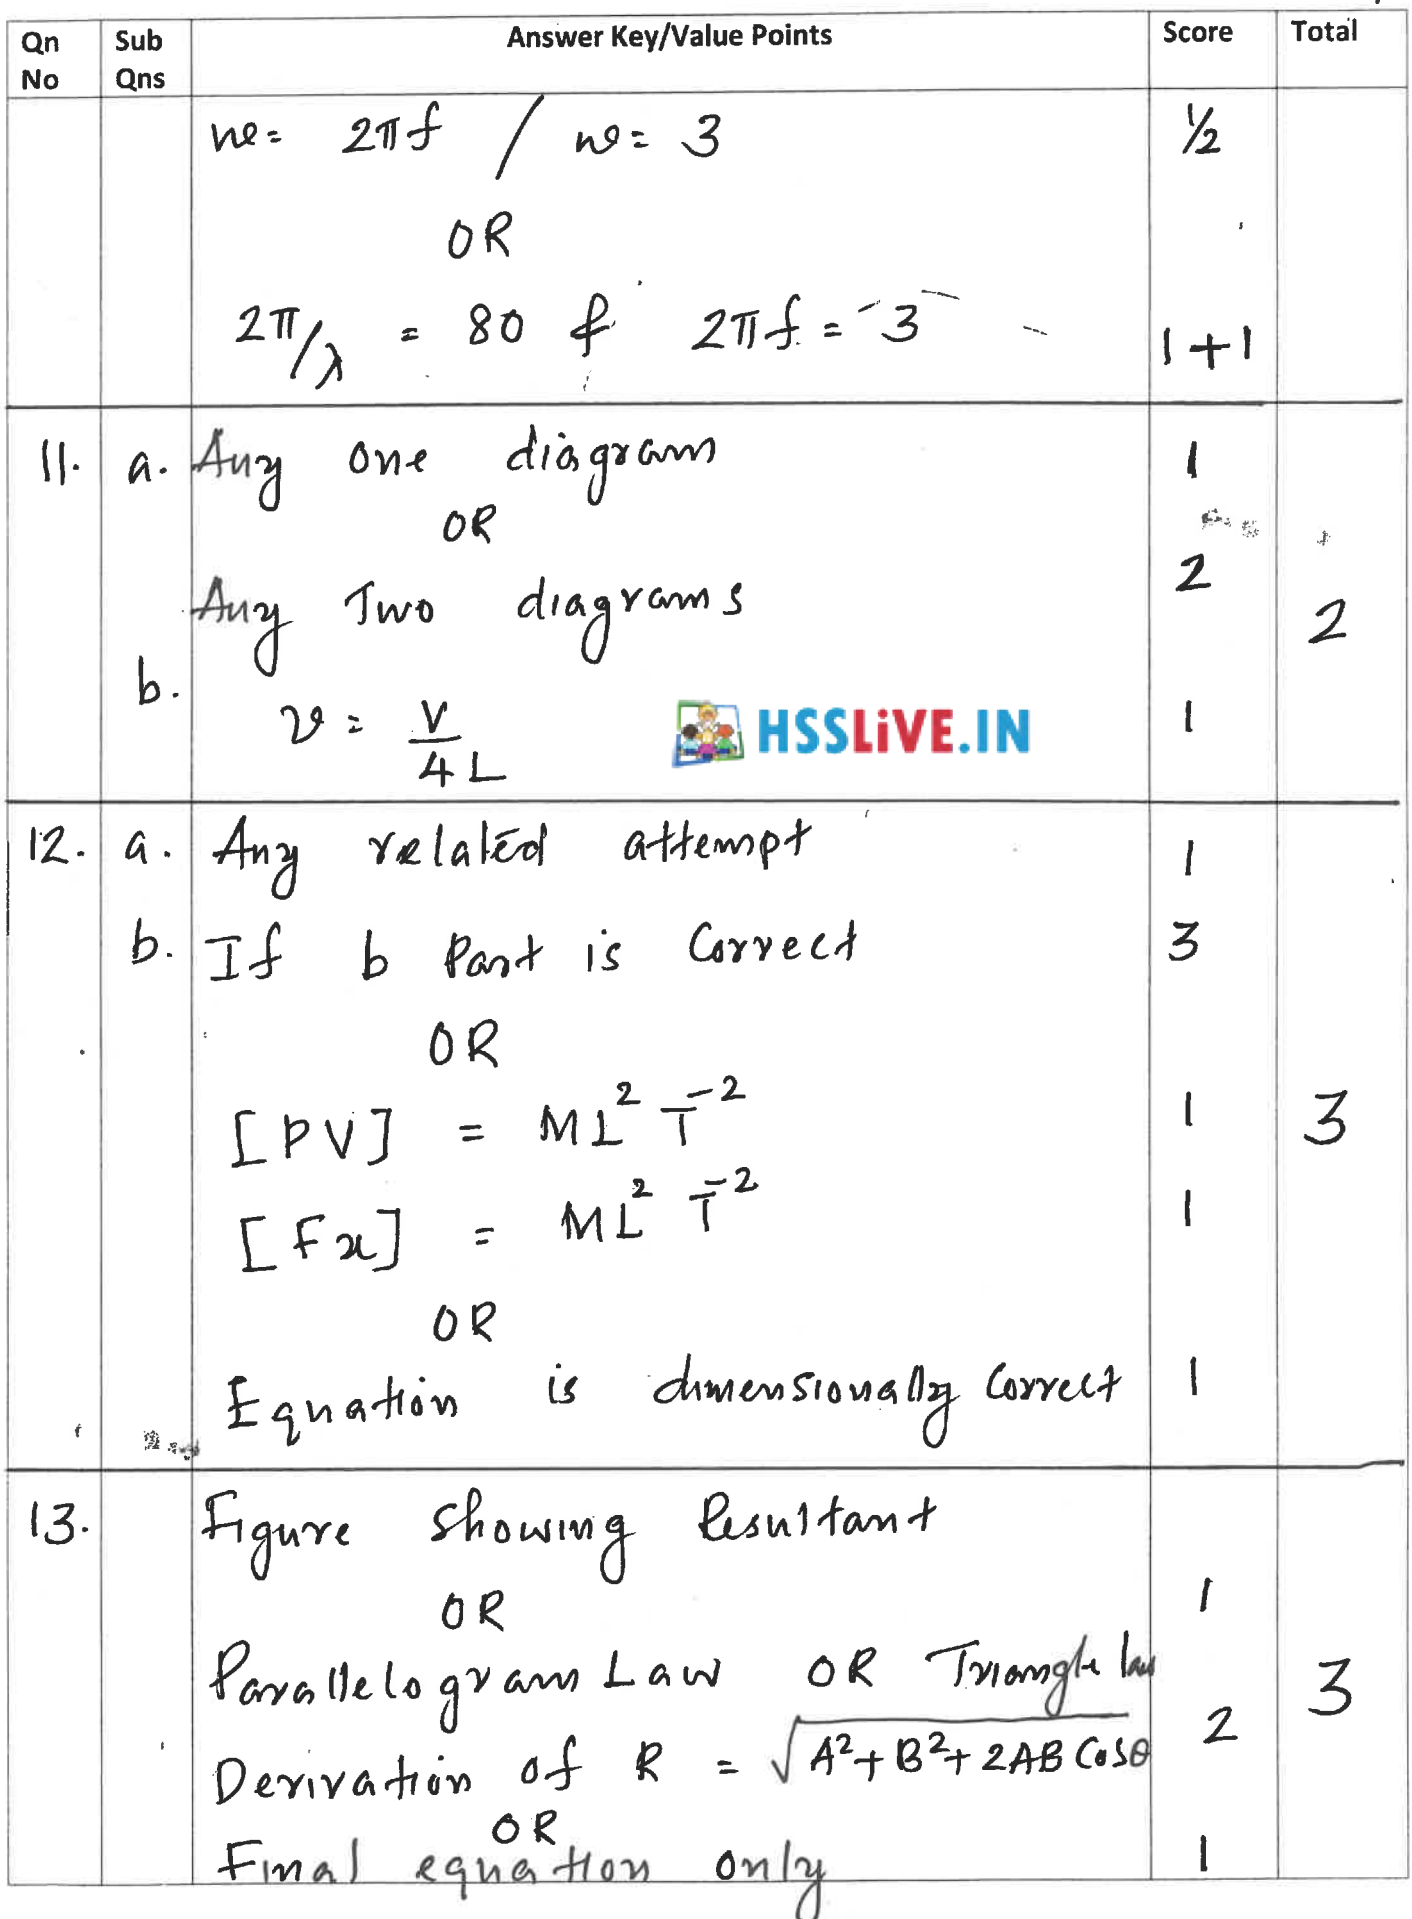 Qn No	Sub Qns	Answer Key/Value Points	Score	Total
w= 2πf / w= 3	½
OR
2π/λ = 80 & 2πf = 3	1+1
11. a. Any one diagram	1
OR
Any Two diagrams	2	2
b. ν = V/4L	1
HSSLiVE.IN
12. a. Any related attempt	1
b. If b Part is Correct	3
OR
[PV] = ML² T⁻²	1	3
[Fx] = ML² T⁻²	1
OR
Equation is dimensionally Correct	1
13. Figure showing Resultant
OR	1
Parallelogram Law OR Triangle law	3
Derivation of R = √A²+B²+2AB Cosθ	2
OR
Final equation only	1